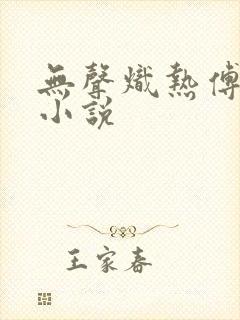 無聲熾熱傅
小說
王家春